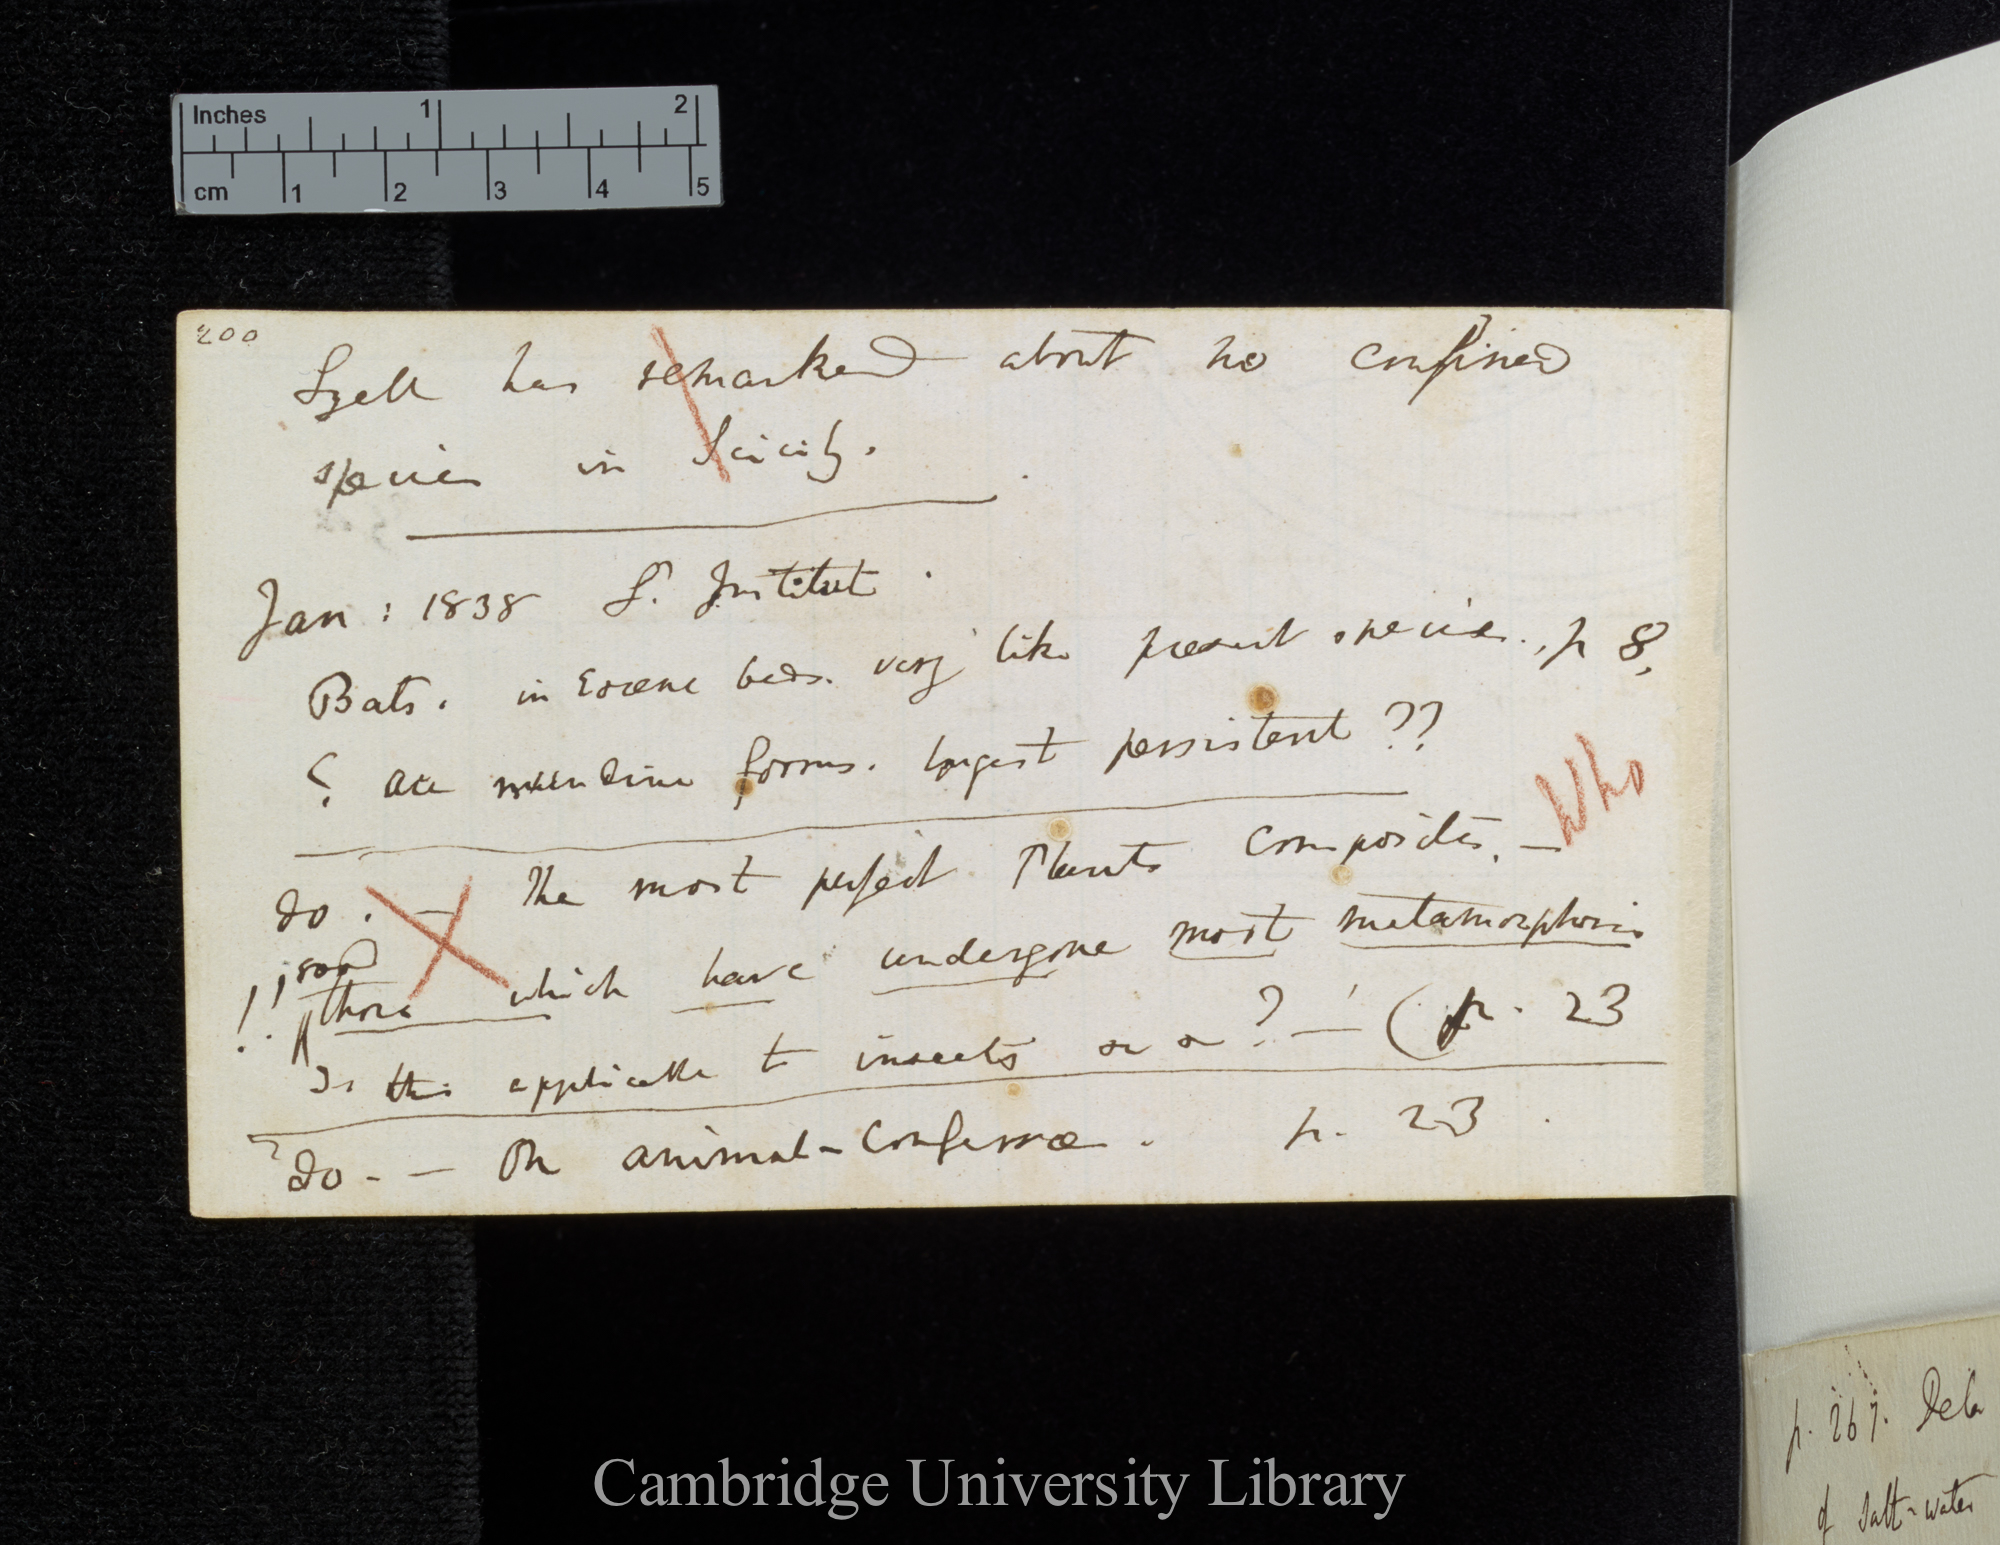 Inches 1 2
cm 1 2 3 4 5
200
Lyell has remarked about no confined
species in Scicily.
Jan: 1838 L. Institut.
Bats. in Eocene beds. very like present species., p 8,
? are forms. longest persistent ??
Who
do. — The most perfect Plants Composites. —
!! those which have undergone most metamorphosis
Is this applicable to insects or ? — ! (p. 23
do. — On animal-Confervæ. p. 23.
p. 267.
of Salt-water
Cambridge University Library